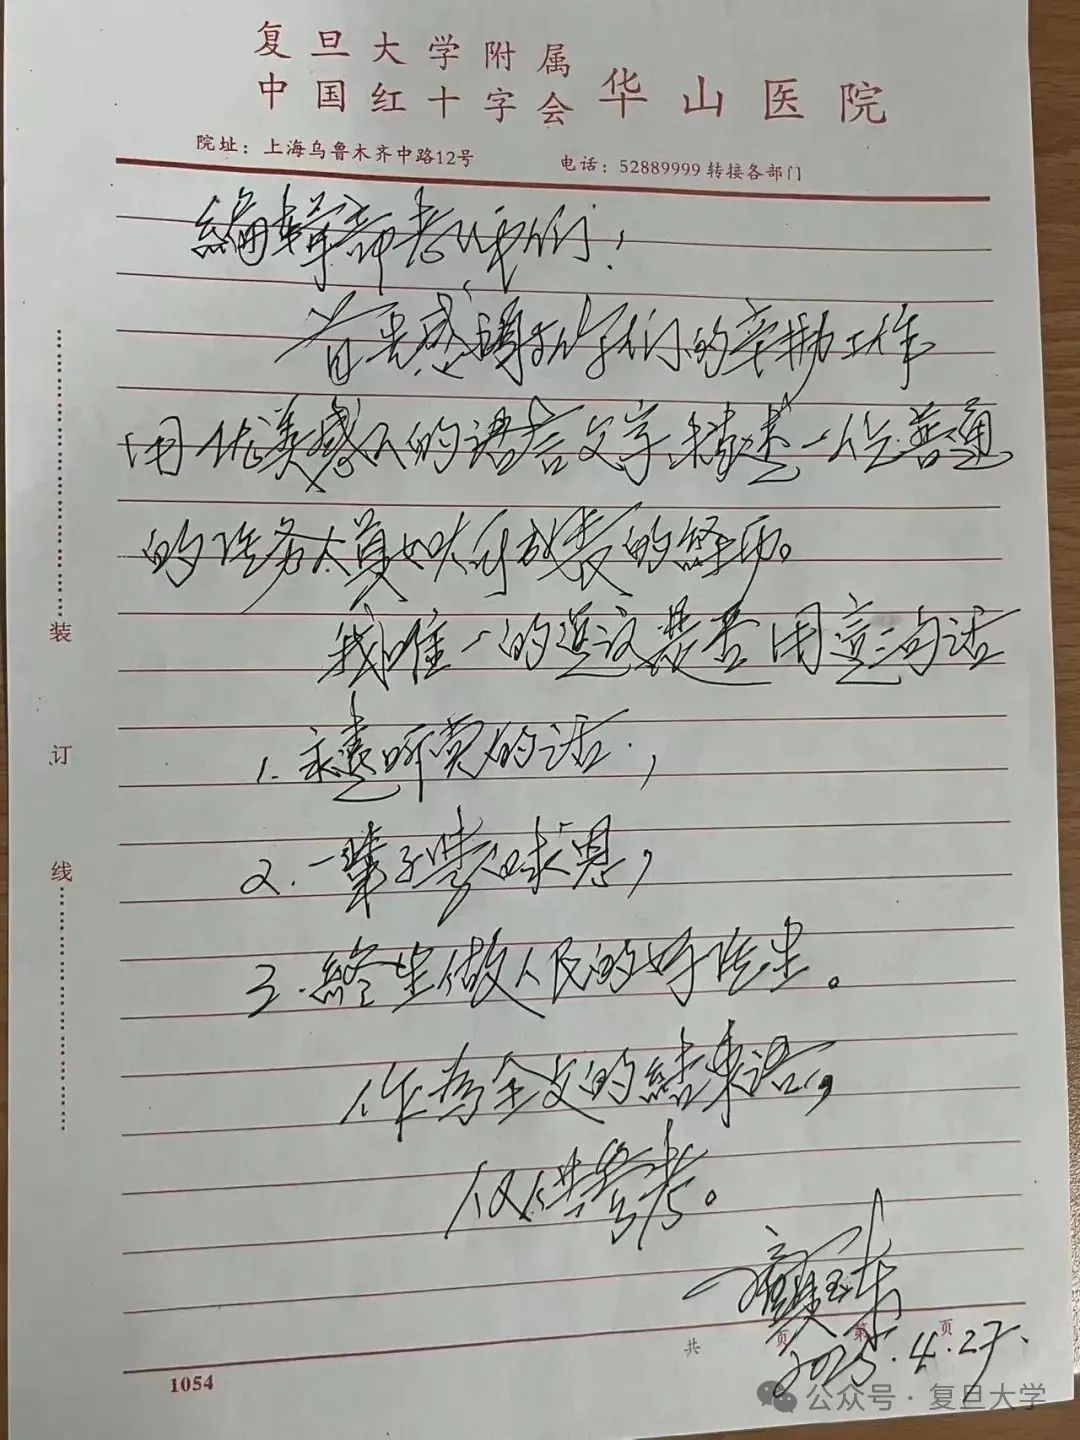 复旦大学附属
中国红十字会 华山医院
院址：上海乌鲁木齐中路12号 电话：52889999转接各部门
编辑部老师们！
首先感谢 们的辛勤工作
用优美感人的语言文字, 述一位普通
的医务人员 成长的经历。
我唯一的 是否用这三句话
1. 永远听党的话，
2. 一辈子学白求恩，
3. 终生做人民的好医生。
作为全文的结束语，
仅供参考。
2025.4.27.
共 页 第 页
1054
装
订
线
公众号·复旦大学